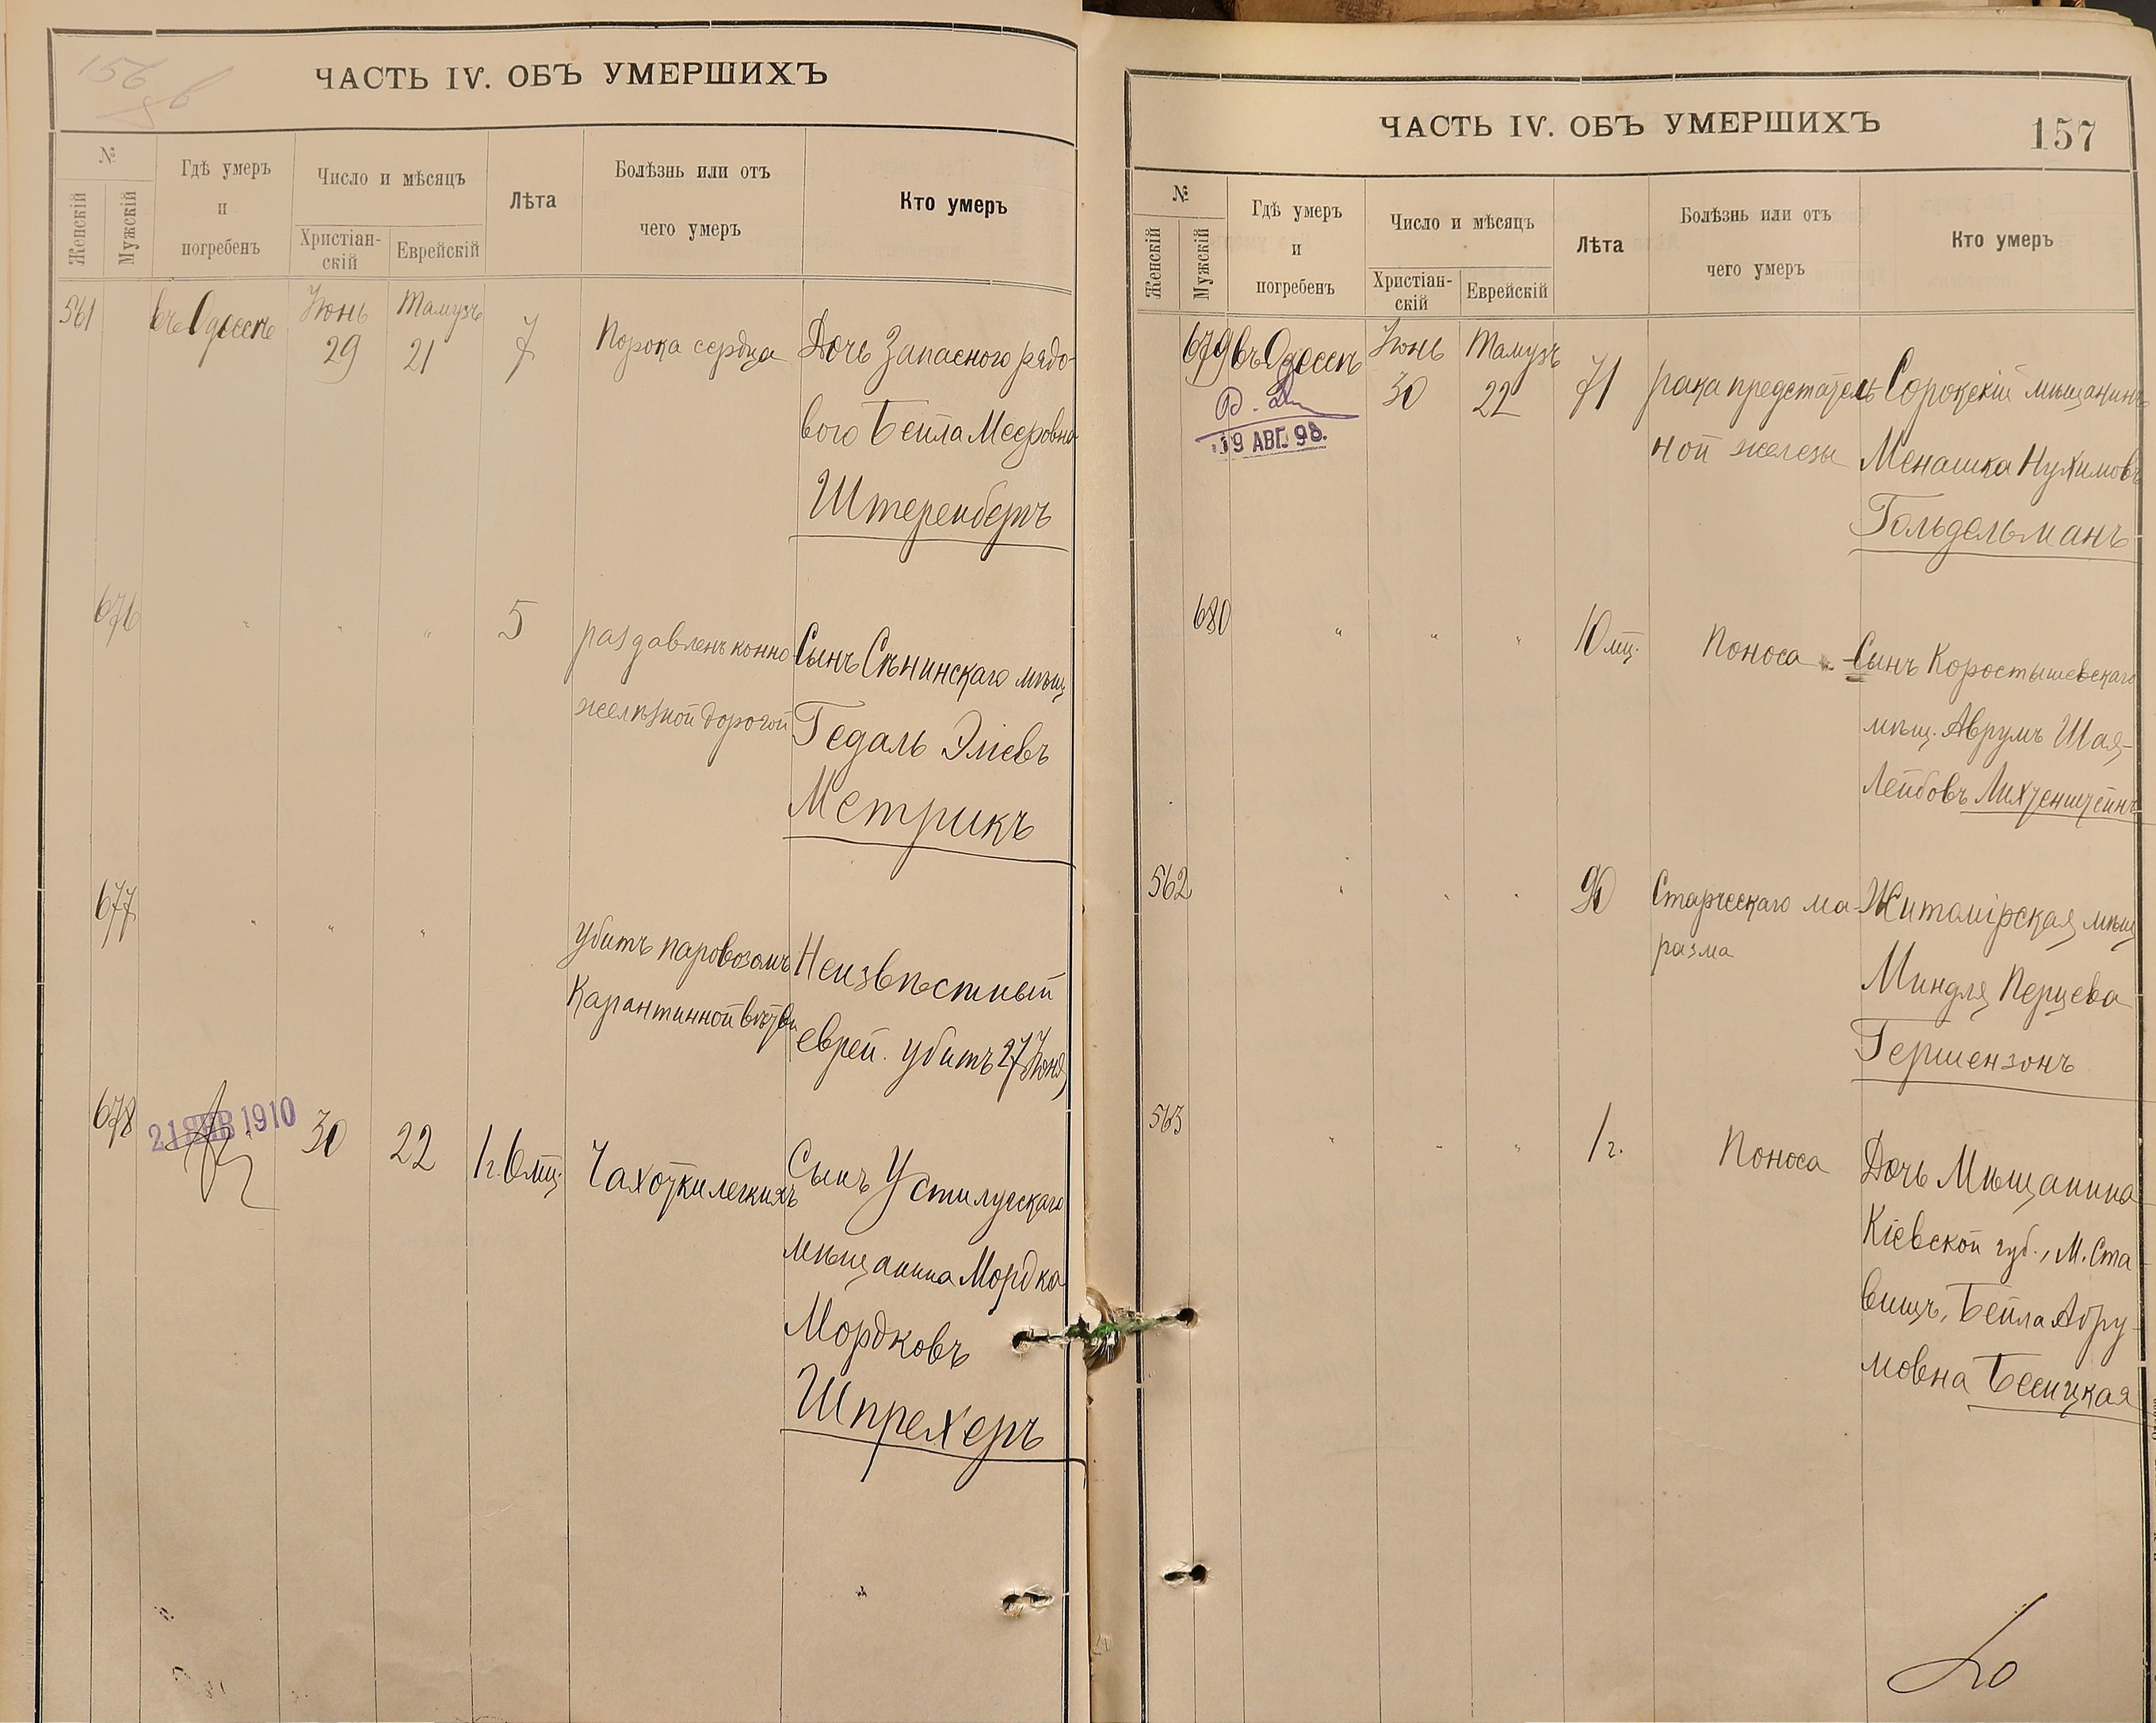 156
ЧАСТЬ IV. ОБЪ УМЕРШИХЪ
№
Женскій
Мужскій
Гдѣ умеръ
и
погребенъ
Число и мѣсяцъ
Христіан-
скій
Еврейскій
Лѣта
Болѣзнь или отъ
чего умеръ
Кто умеръ
561 въ Одессѣ Іюнь 29 Тамузъ 21 7 Порока сердца Дочь Запасного рядо-
вого Бейла Мееровна
Штеренбергъ
676 " " " 5 раздавленъ конно Сынъ Сѣнинскаго мѣщ
желѣзной дорогой Гедаль Эліевъ
Метрикъ
677 " " " убитъ паровозомъ Неизвѣстный
Карантинной вѣтви еврей. убитъ 27 Іюня
678 21 ЯНВ 1910 30 22 1 г. 6 мц. Чахотки легкихъ Сынъ Устилугскаго
мѣщанина Мордко
Мордковъ
Шпрехеръ
ЧАСТЬ IV. ОБЪ УМЕРШИХЪ
157
№
Женскій
Мужскій
Гдѣ умеръ
и
погребенъ
Число и мѣсяцъ
Христіан-
скій
Еврейскій
Лѣта
Болѣзнь или отъ
чего умеръ
Кто умеръ
679 въ Одессѣ Іюнь 30 Тамузъ 22 71 рака предстатель Сорокскій мѣщанинъ
19 АВГ. 98.
ной железы Менашка Нухимовъ
Гольдельманъ
680 " " " 10 мц. Поноса Сынъ Коростышевскаго
мѣщ. Аврумъ Шая-
Лейбовъ Лихтенштейнъ
562 " " " 90 Старческаго ма- Житомірская мѣщ
разма Миндля Перцева
Гершензонъ
563 " " " 1 г. Поноса Дочь Мѣщанина
Кіевской губ., М. Ста-
вищъ, Бейла Абру-
мовна Бесицкая